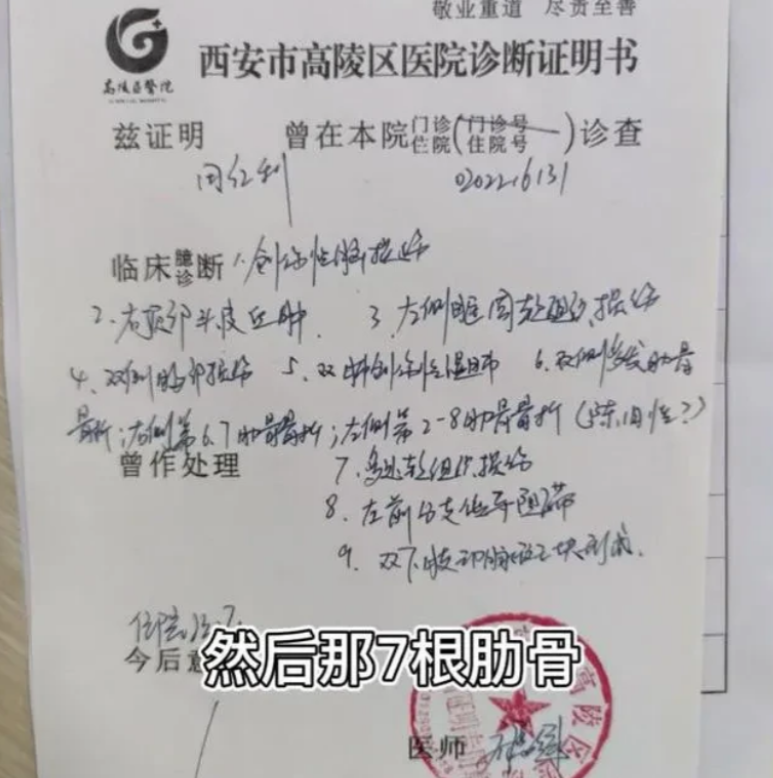 敬业重道 尽责至善
高陵区医院
西安市高陵区医院诊断证明书
兹证明 曾在本院门诊住院(门诊号住院号)诊查
闫红利 0202216131
临床臆诊断 1.创伤性脑损伤
2.右顶部头皮血肿 3.左侧眶周软组织损伤
4.双侧胸部损伤 5.双肺创伤性湿肺 6.双侧多发肋骨
骨折;右侧第6.7肋骨骨折;左侧第2-8肋骨骨折(陈旧性?)
曾作处理 7.多处软组织损伤
8.左前分支传导阻滞
9.双下肢动脉斑块形成.
住院治疗
今后意
然后那7根肋骨
高陵区
医师